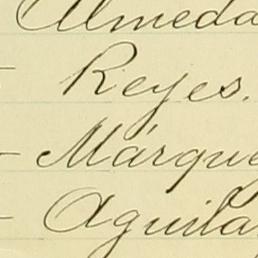 Almeda
Reyes.
- Márque
- Aguila